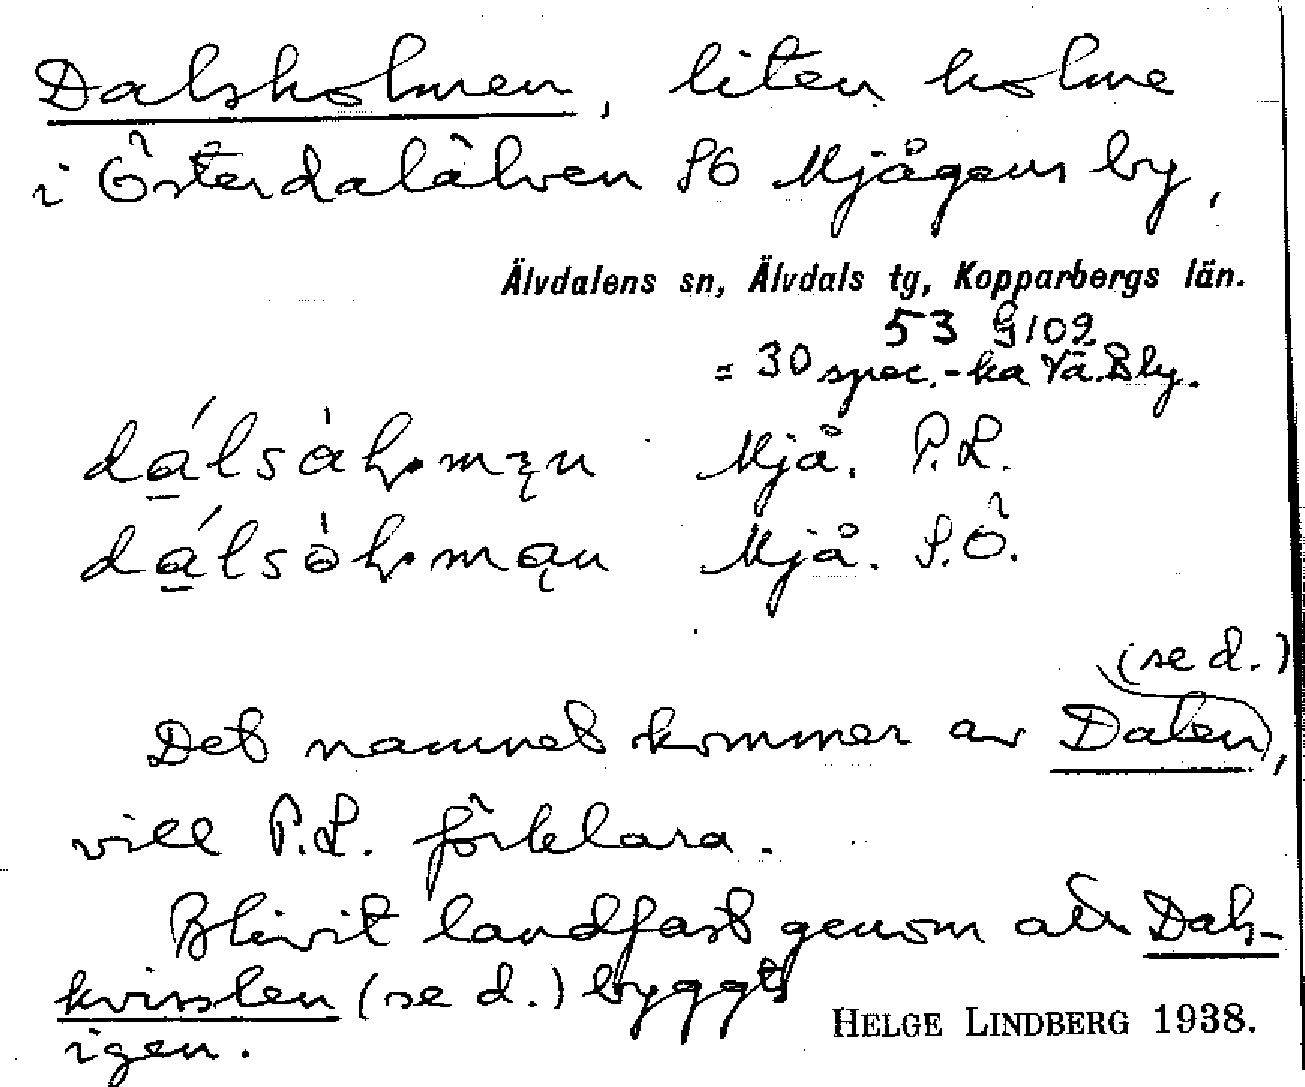 Dalsholmen, liten holme
i Österdalälven SO Mjågens by,
Älvdalens sn, Älvdals tg, Kopparbergs län.
53 G 102
= 30 spec.-ka Vä. Bly.
Mjå. P.L.
Mjå. S.Ö.
(se d.)
Det namnet kommer av Dalen,
vill P.L. förklara.
Blivit landfast genom att Dals-
kvisslen (se d.) byggts
igen.
HELGE LINDBERG 1938.